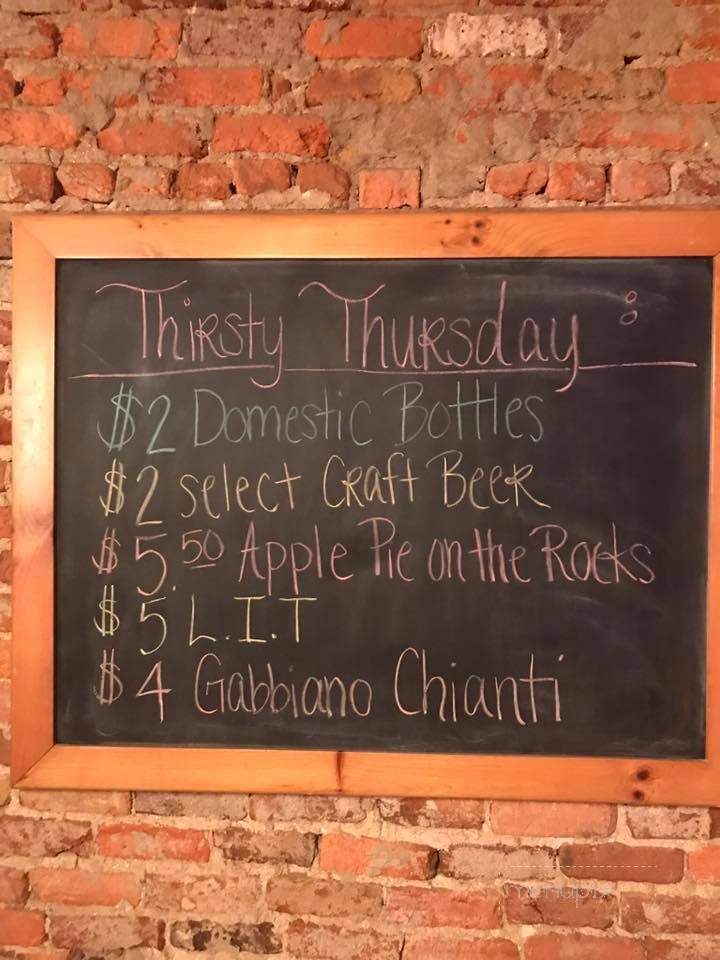 Thirsty Thursday :
$2 Domestic Bottles
$2 select Craft Beer
$5.50 Apple Pie on the Rocks
$5 L.I.T
$4 Gabbiano Chianti
menupix